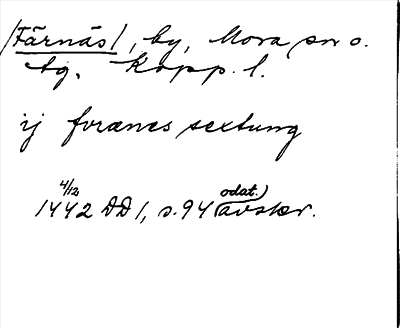 /Färnäs/, by, Mora sn o.
tg, Kopp. l.
ij foranes sextung
4/12
1442 DD 1, s. 94 odat.) avskr.